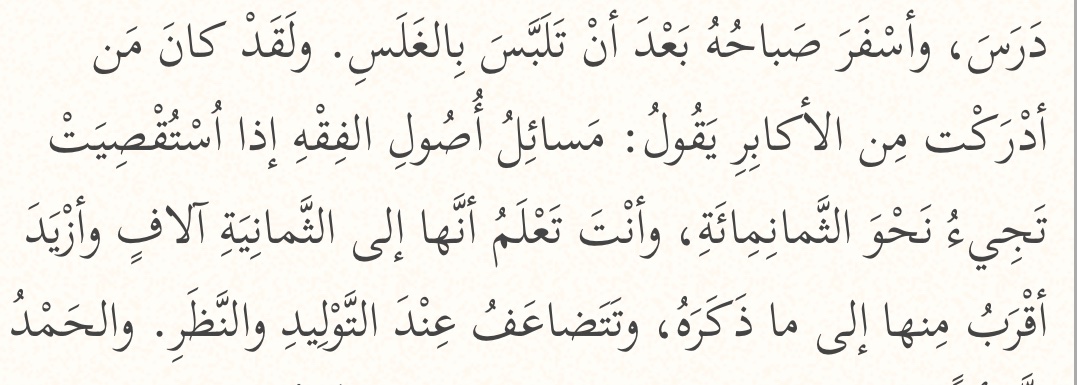 دَرَسَ، وأسْفَرَ صَباحُهُ بَعْدَ أنْ تَلَبَّسَ بِالغَلَسِ. ولَقَدْ كانَ مَن
أدْرَكْت مِن الأكابِرِ يَقُولُ: مَسائِلُ أُصُولِ الفِقْهِ إذا اُسْتُقْصِيَتْ
تَجِيءُ نَحْوَ الثَّمانِمِائَةِ، وأنْتَ تَعْلَمُ أنَّها إلى الثَّمانِيَةِ آلافٍ وأزْيَدَ
أقْرَبُ مِنها إلى ما ذَكَرَهُ، وتَتَضاعَفُ عِنْدَ التَّوْلِيدِ والنَّظَرِ. والحَمْدُ